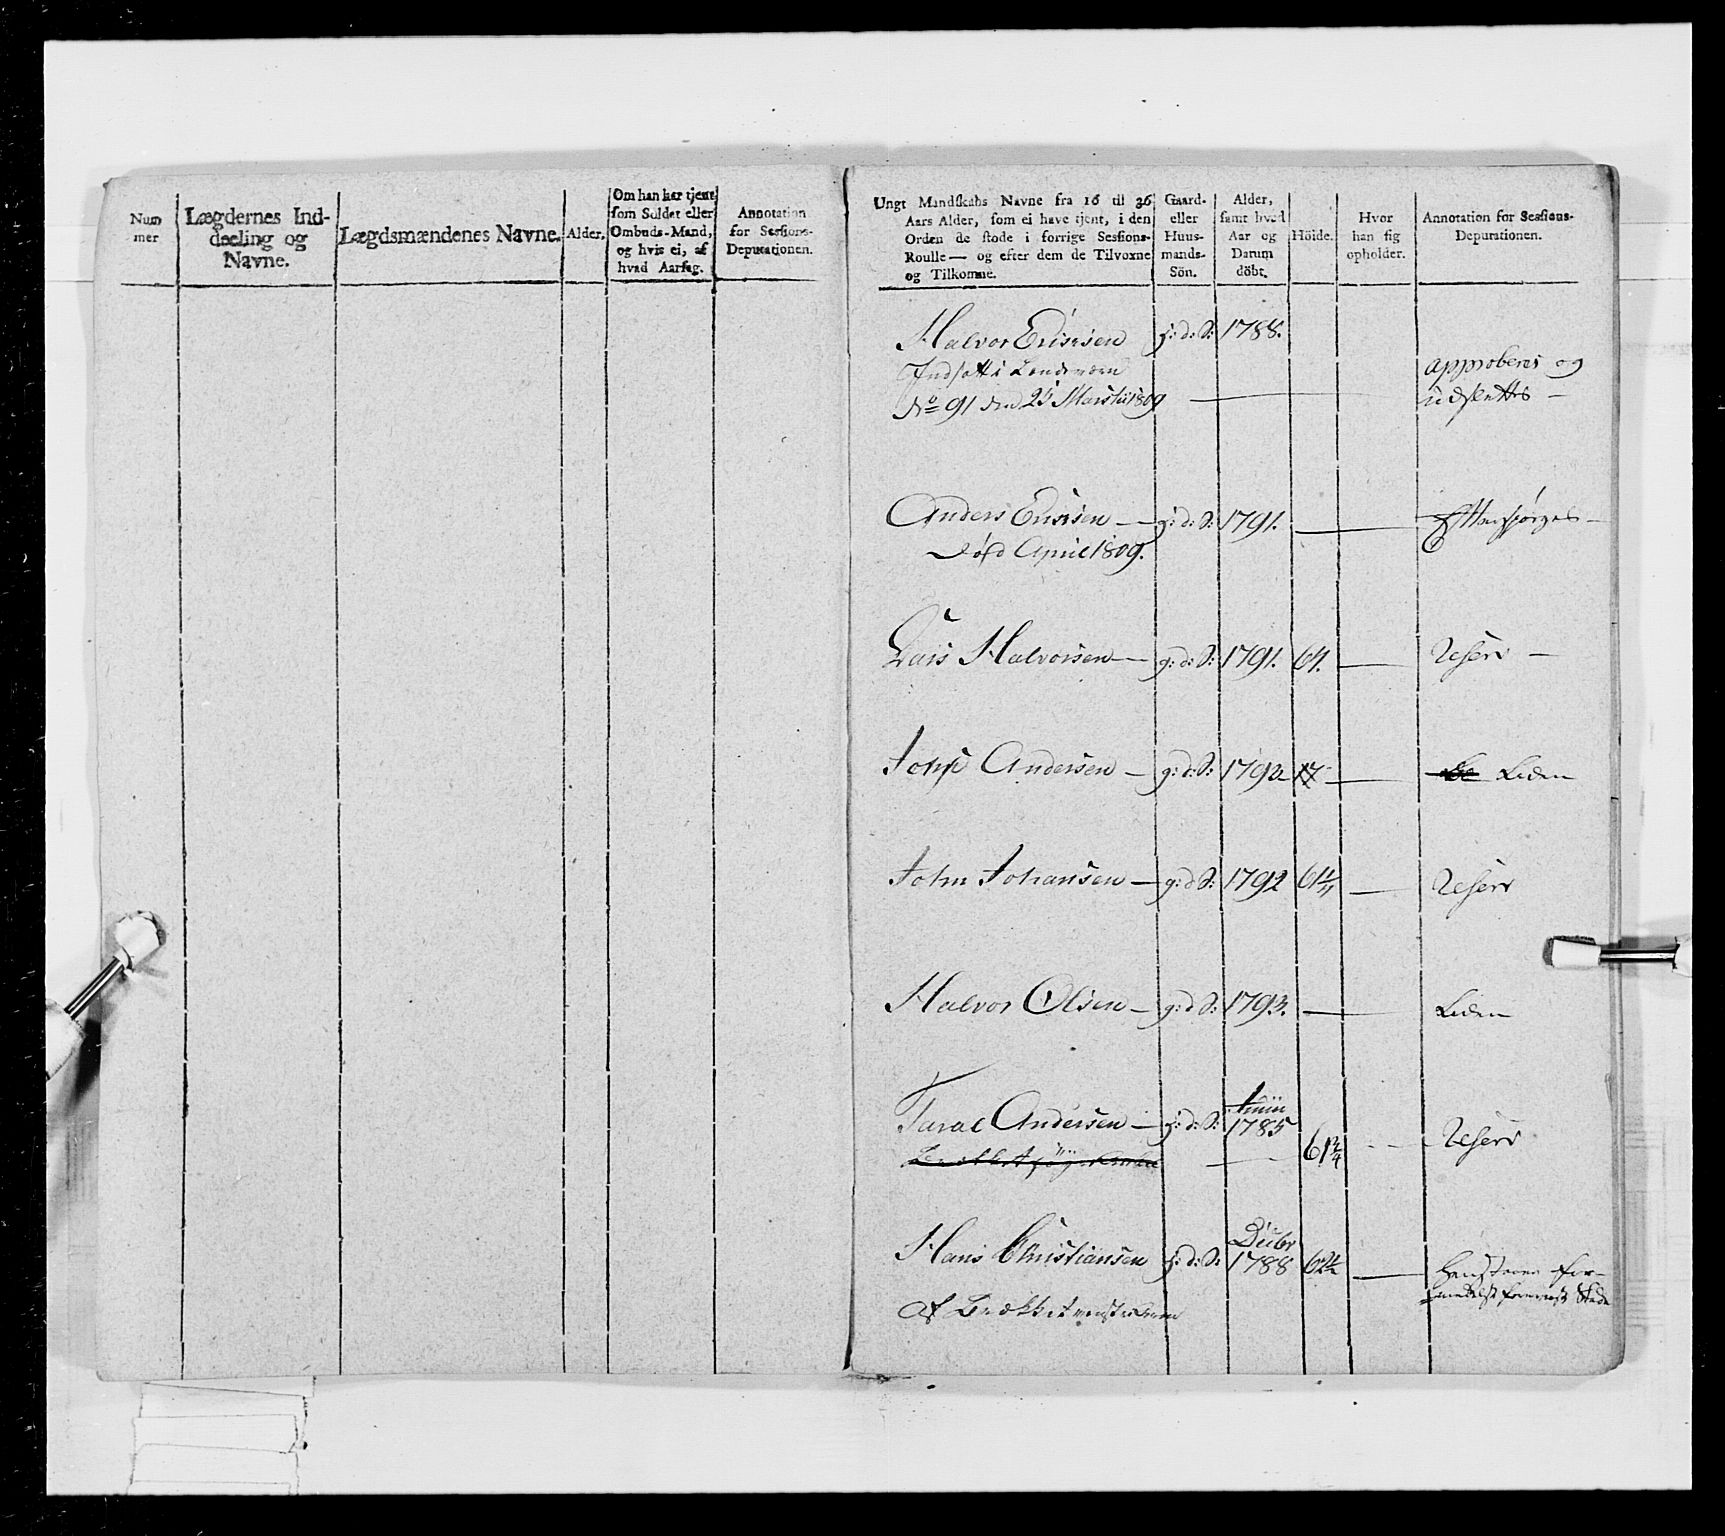 Num
mer
Lægdernes Ind-
deeling og
Navne.
Lægdsmændenes Navne.
Alder.
Om han har tjent
som Soldat eller
Ombuds-Mand,
og hvis ei, af
hvad Aarsag.
Annotation
for Sessions-
Deputationen.
Ungt Mandskabs Navne fra 16 til 36
Aars Alder, som ei have tjent, i den
Orden de stode i forrige Sessions-
Roulle — og efter dem de Tilvoxne
og Tilkomne.
Gaard-
eller
Huus-
mands-
Sön.
Alder,
samt hvad
Aar og
Datum
döbt.
Höide.
Hvor
han sig
opholder.
Annotation for Sessions-
Deputationen.
Halvor Erichsen h: d: S: 1788.
Indsatt i Landeværn
No 91 den 25 Martii 1809 — approberes og
udslettes —
Anders Erichsen — g: d: S: 1791. —
död April 1809.
Lars Halvorsen — g: d: S: 1791. 61. — Reserv —
John Andersen — g: d: S: 1792 — Liden
John Johansen — g: d S: 1792 61 1/4 — Reserv
Halvor Olsen — g: d S: 1793. — Liden
Junii
Taral Andersen — h: d: S: 1785 61 3/4 — Reserv
Decbr
Hans Christiansen h: d: S: 1788 62 1/2 —
af